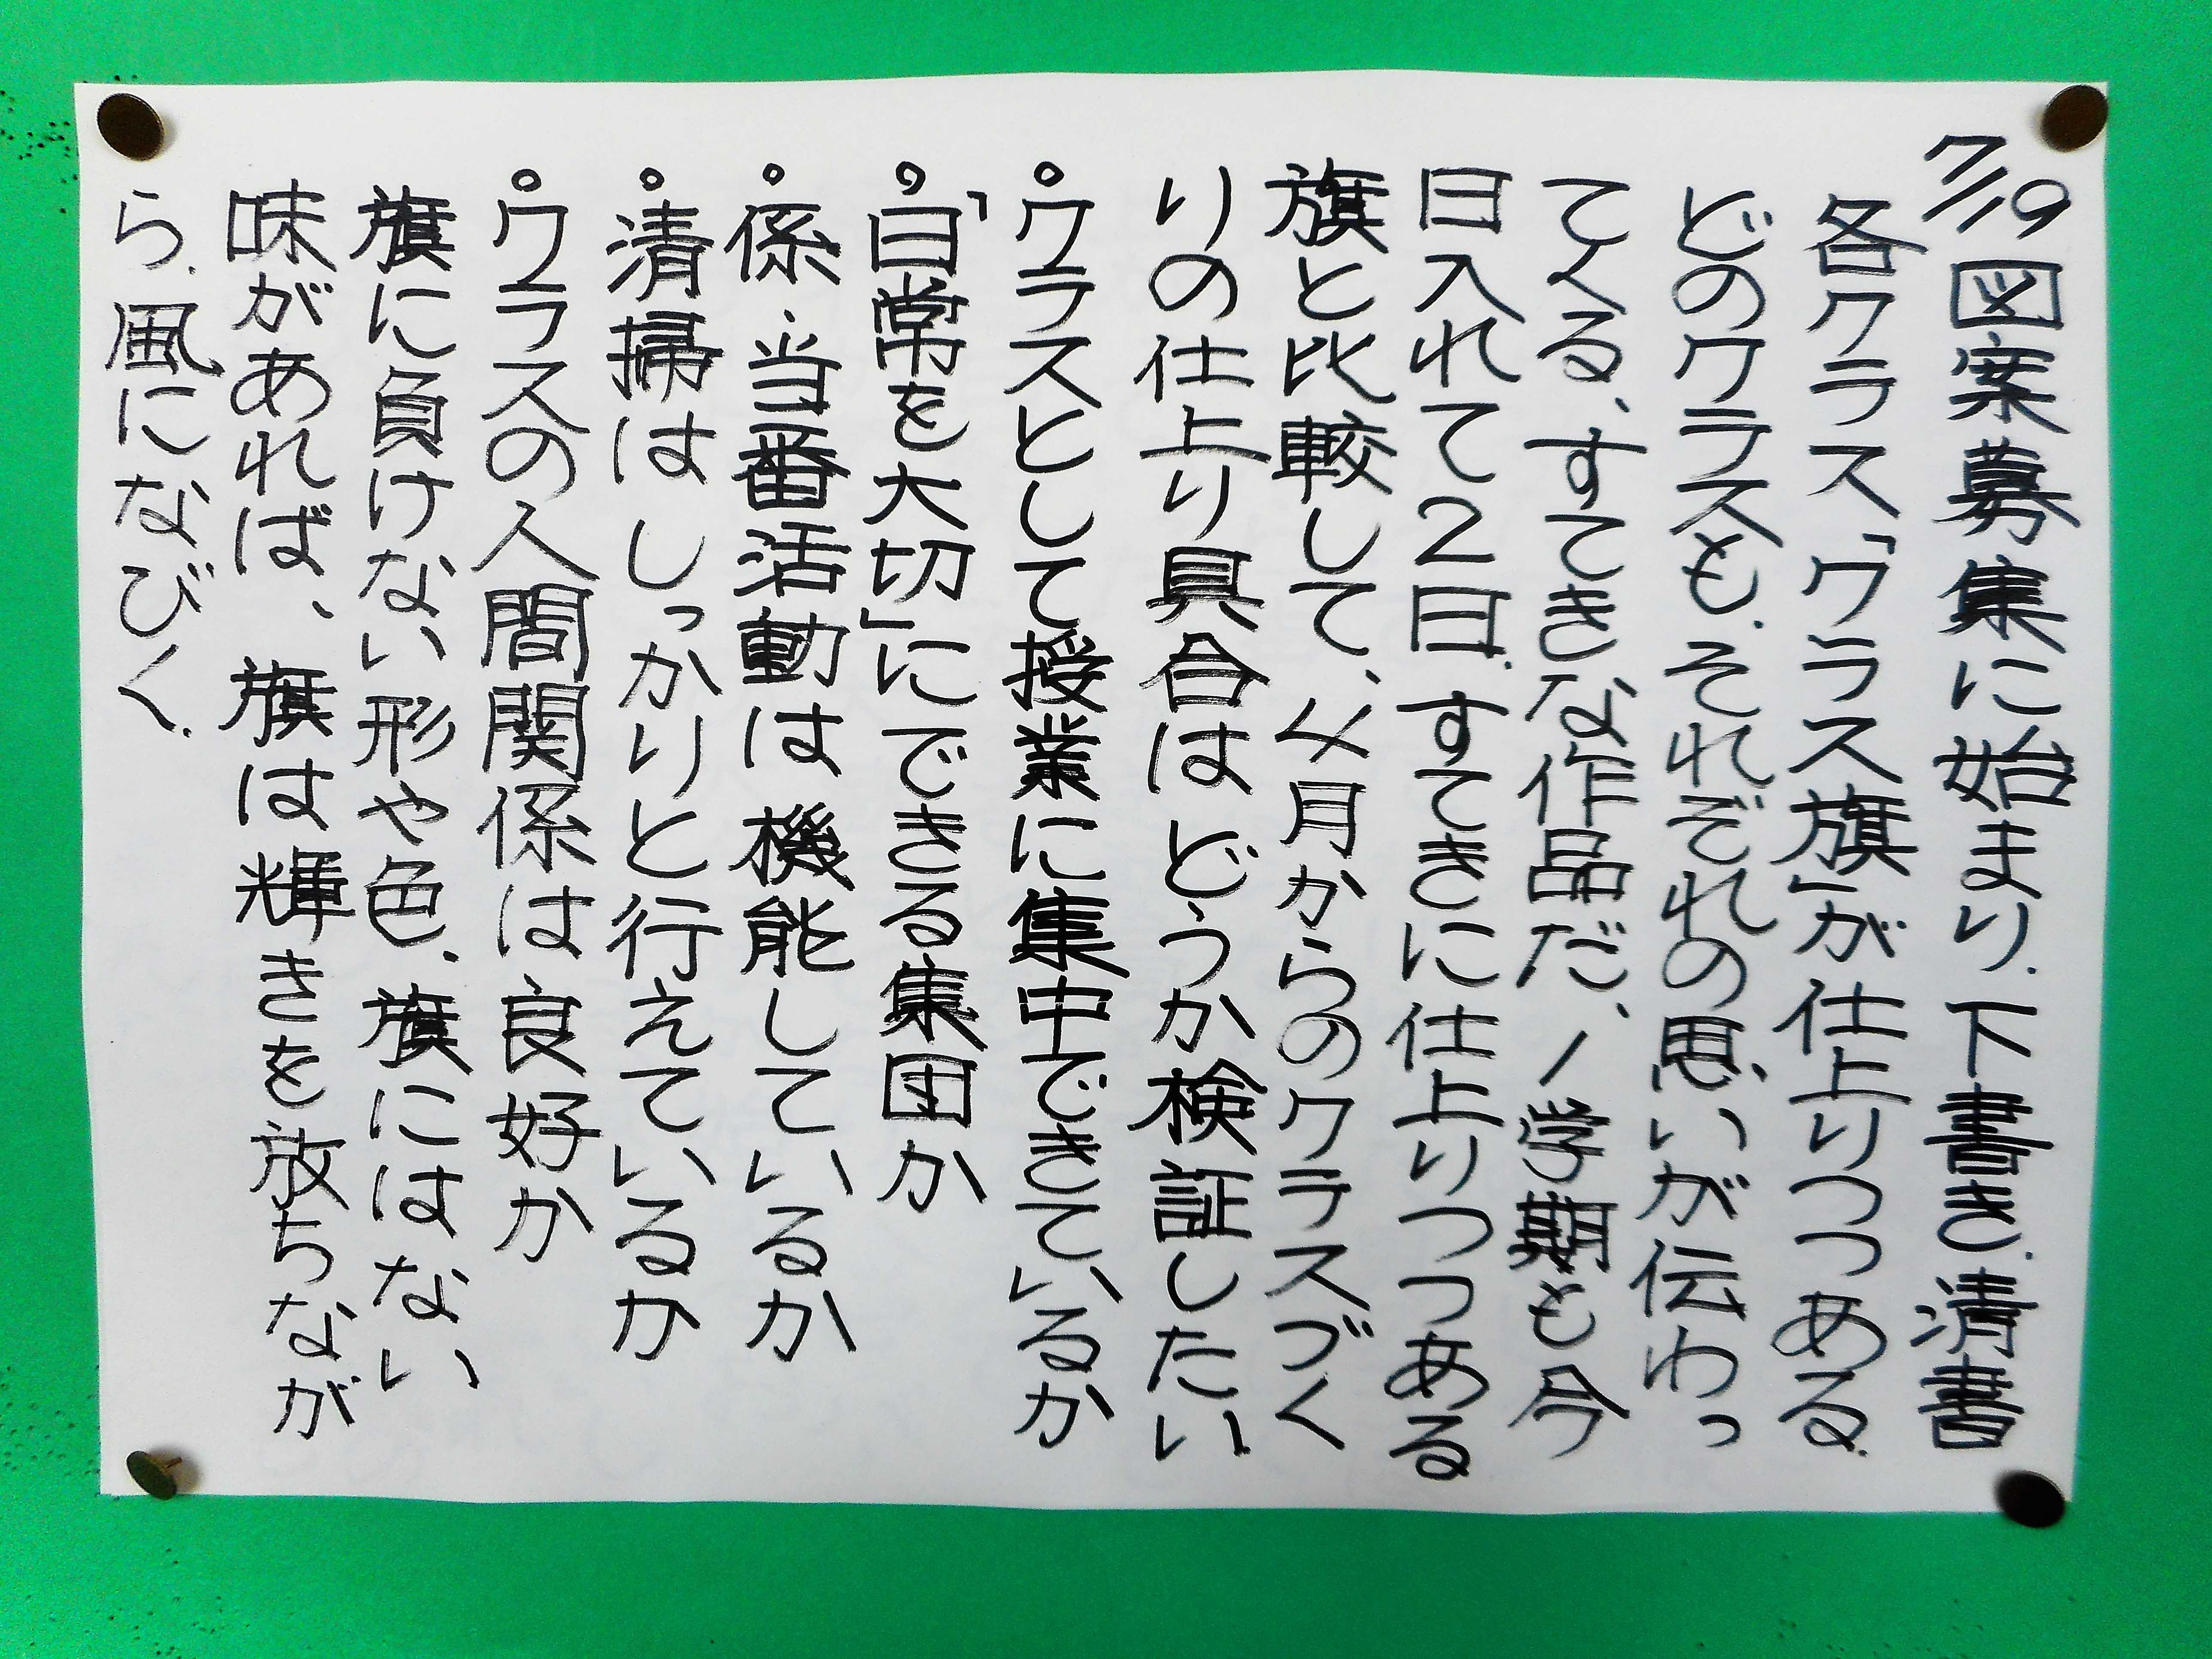 7/19 図案募集に始まり、下書き、清書
各クラス「クラス旗」が仕上りつつある。
どのクラスも、それぞれの思いが伝わっ
てくる、すてきな作品だ、1学期も今
日入れて2日、すてきに仕上りつつある
旗と比較して、4月からのクラスづく
りの仕上り具合はどうか検証したい
。クラスとして授業に集中できているか
。「日常を大切」にできる集団か
。係・当番活動は機能しているか
。清掃はしっかりと行えているか
。クラスの人間関係は良好か
旗に負けない形や色、旗にはない
味があれば、旗は輝きを放ちなが
ら、風になびく、